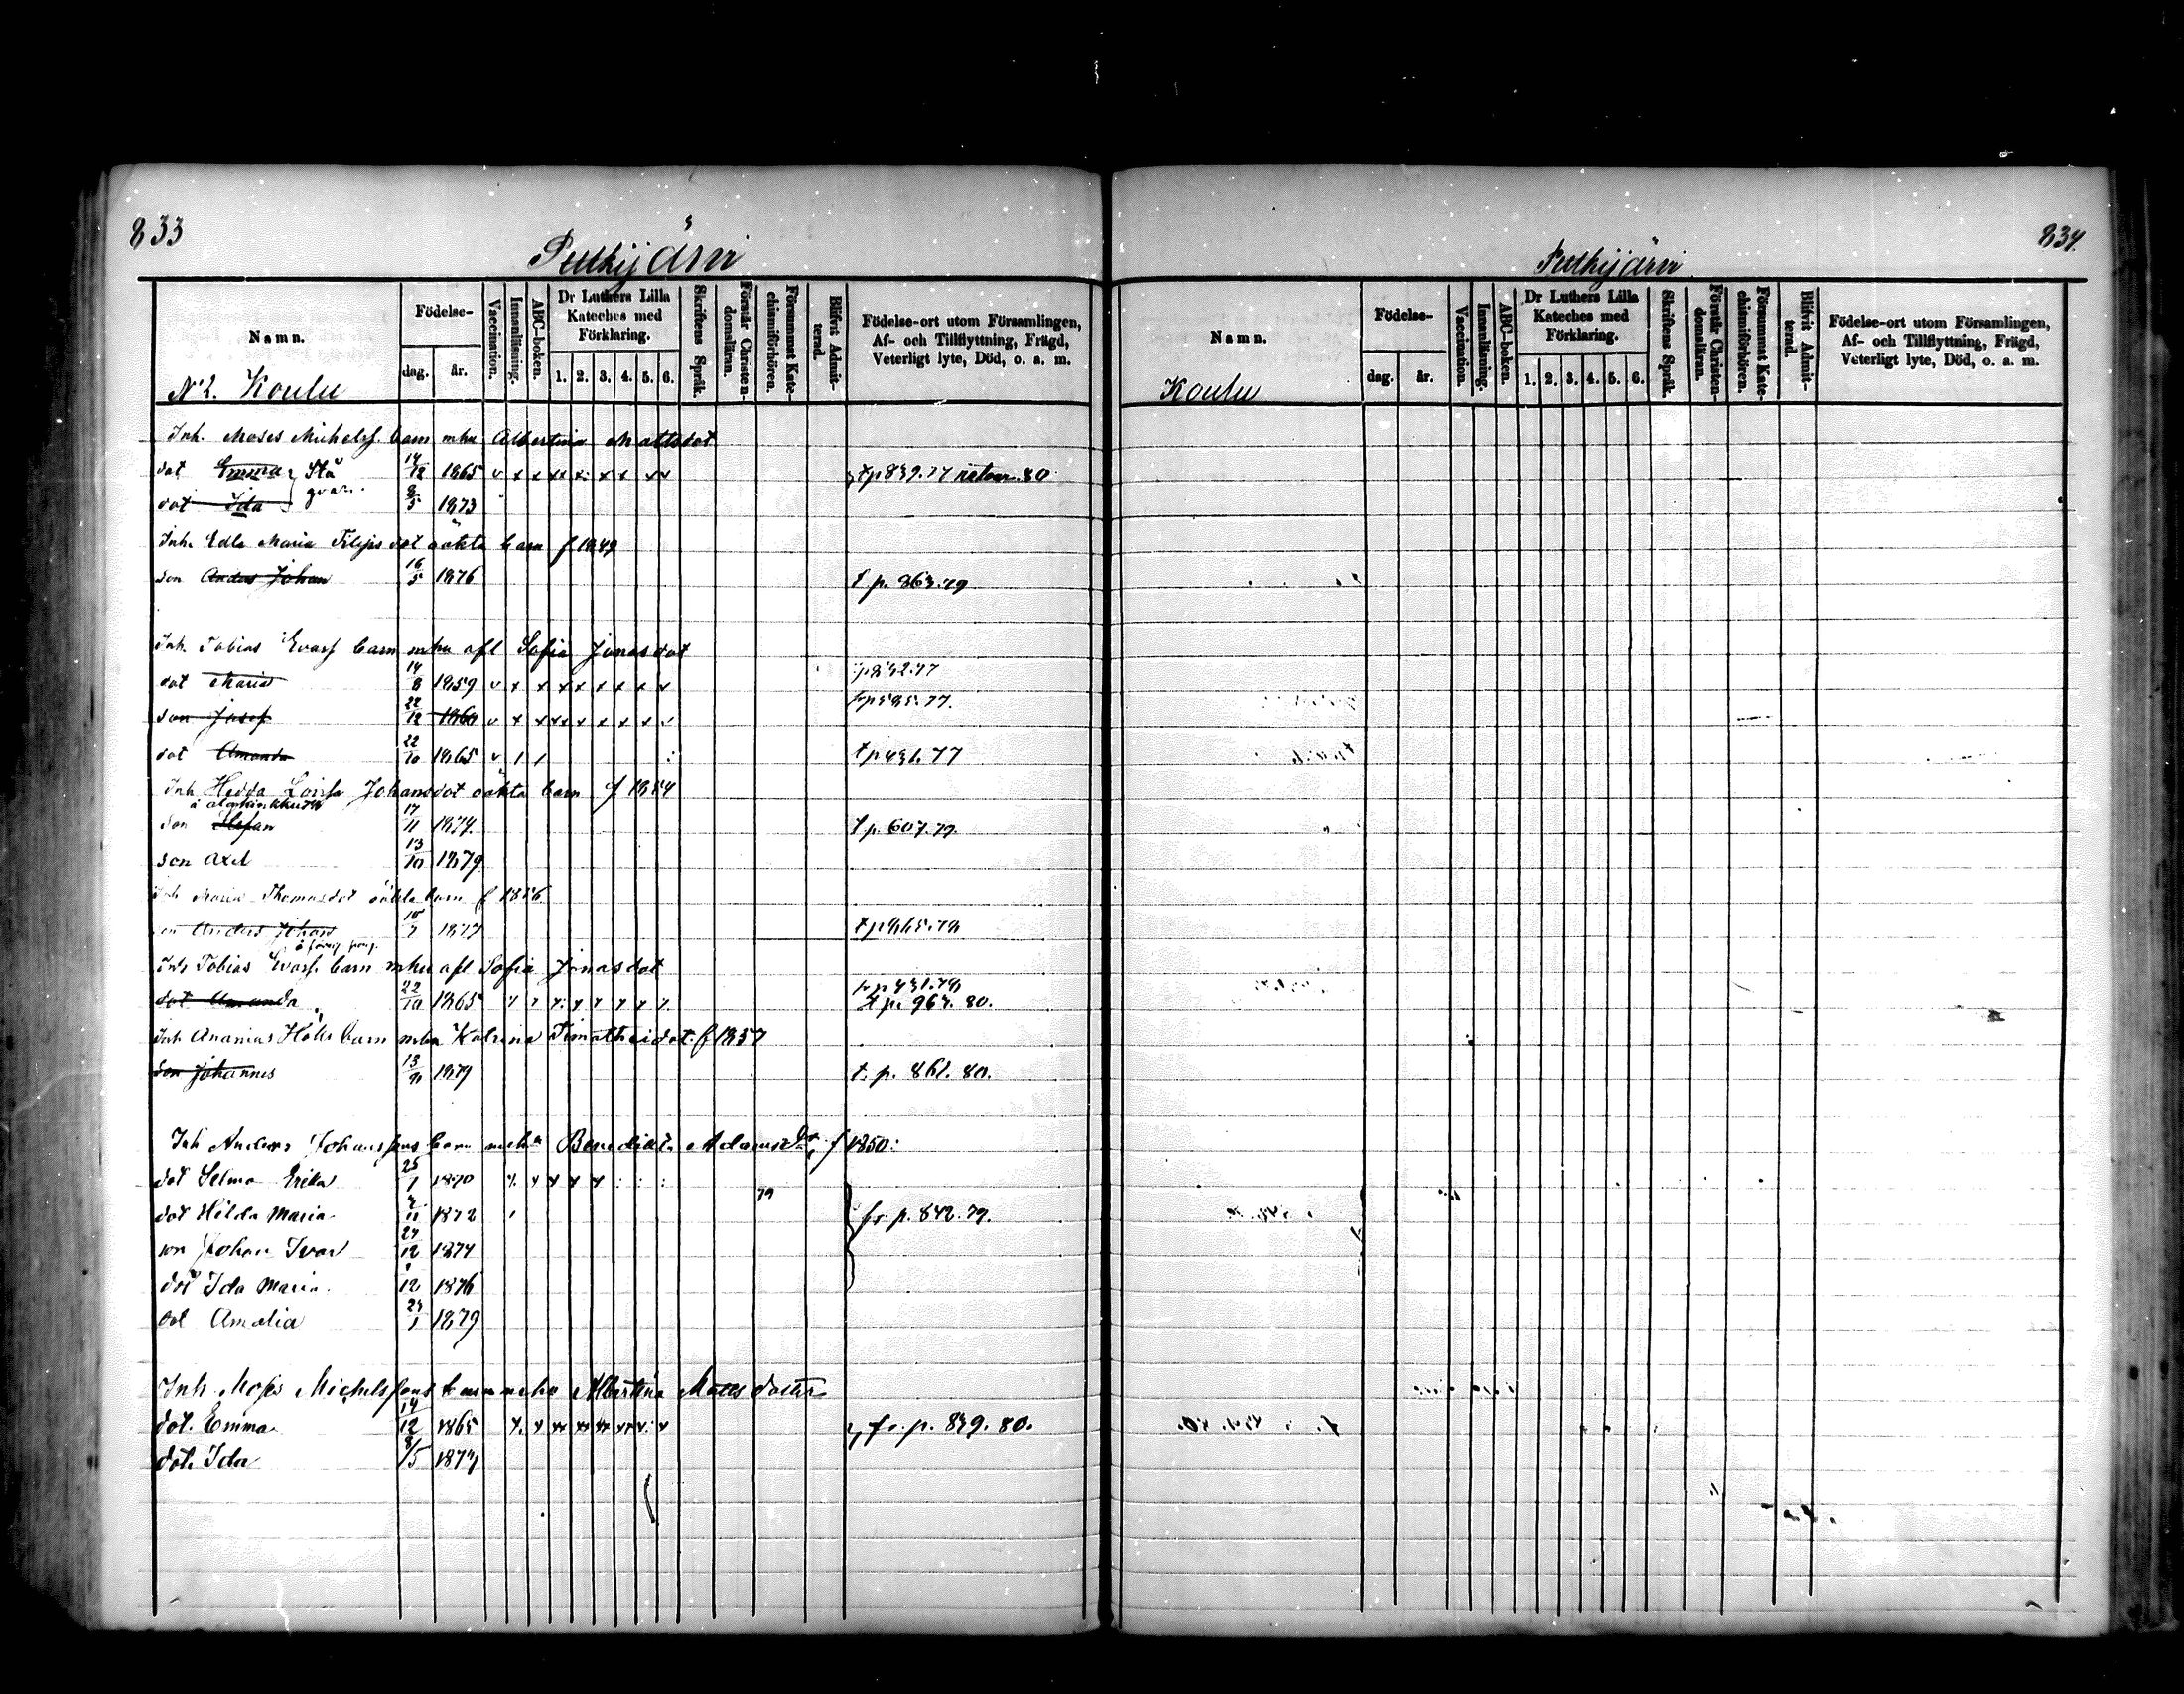 833
Putkijärvi
Namn.
Födelse-
dag.
år.
Vaccination.
Innanläsning.
ABC-boken.
Dr Luthers Lilla Kateches med Förklaring.
1. 2. 3. 4. 5. 6.
Skriftens Språk.
Förstår Christen-domsläran.
Försummat Kate-chismiförhören.
Blifvit Admit-terad.
Födelse-ort utom Församlingen, Af- och Tillflyttning, Frägd, Veterligt lyte, Död, o. a. m.
N:2. Koulu
Inh. Moses Michelss. barn mhu Albertina Mattsdot
dot Emma Stå 14/12 1865 v x x xx x x x xx tp 839.77 retour. 80
dot Ida qvar. 8/5 1873
Inh. Edla Maria Filipsdot oäkta barn f 1849
son Anders Johan 16/5 1876 t p. 863.79
Inh. Tobias Evass barn mhu afl Sofia Jonasdot
dot Maria 14/8 1859 v x x x x x x x x
son Josef 22/12 1860 v x x x x x x x x
dot Amanda 22/10 1865 v / / t p 431. 77
Inh Hedda Lovisa Johansdot oäkta barn f 1854
son Stefan 17/11 1874 t p. 607.79
son Axel 13/10 1879
Inh Maria Thomasdot oäkta barn f 1856
Anders Johan 1877
Inh Tobias Evass. barn mhu afl Sofia Jonasdot
fr p 431.78
dot Amanda 22/10 1865 t p. 964. 80.
Inh Ananias Hölls barn mhu Katrina Timotheidot. f 1857
son Johannes 13/9 1879 t. p. 861. 80.
Inh Anders Johanssons barn mehu Benedikta Adamsdr f 1850.
dot Selma Erika 25/1 1870
79
dot Hilda Maria 1872 fr. p. 842. 79.
son Johan Ivar 24/12 1874
dot Ida Maria 12 1876
dot Amalia 1879
Inh. Moses Michelssons barn mehu Albertina Matts dotter
dot. Emma 14/12 1865 fr. p. 839. 80.
dot. Ida 8/5 1873
834.
Putkijärvi
Namn.
Födelse-
dag.
år.
Vaccination.
Innanläsning.
ABC-boken.
Dr Luthers Lilla Kateches med Förklaring.
1. 2. 3. 4. 5. 6.
Skriftens Språk.
Förstår Christen-domsläran.
Försummat Kate-chismiförhören.
Blifvit Admit-terad.
Födelse-ort utom Församlingen, Af- och Tillflyttning, Frägd, Veterligt lyte, Död, o. a. m.
Koulu